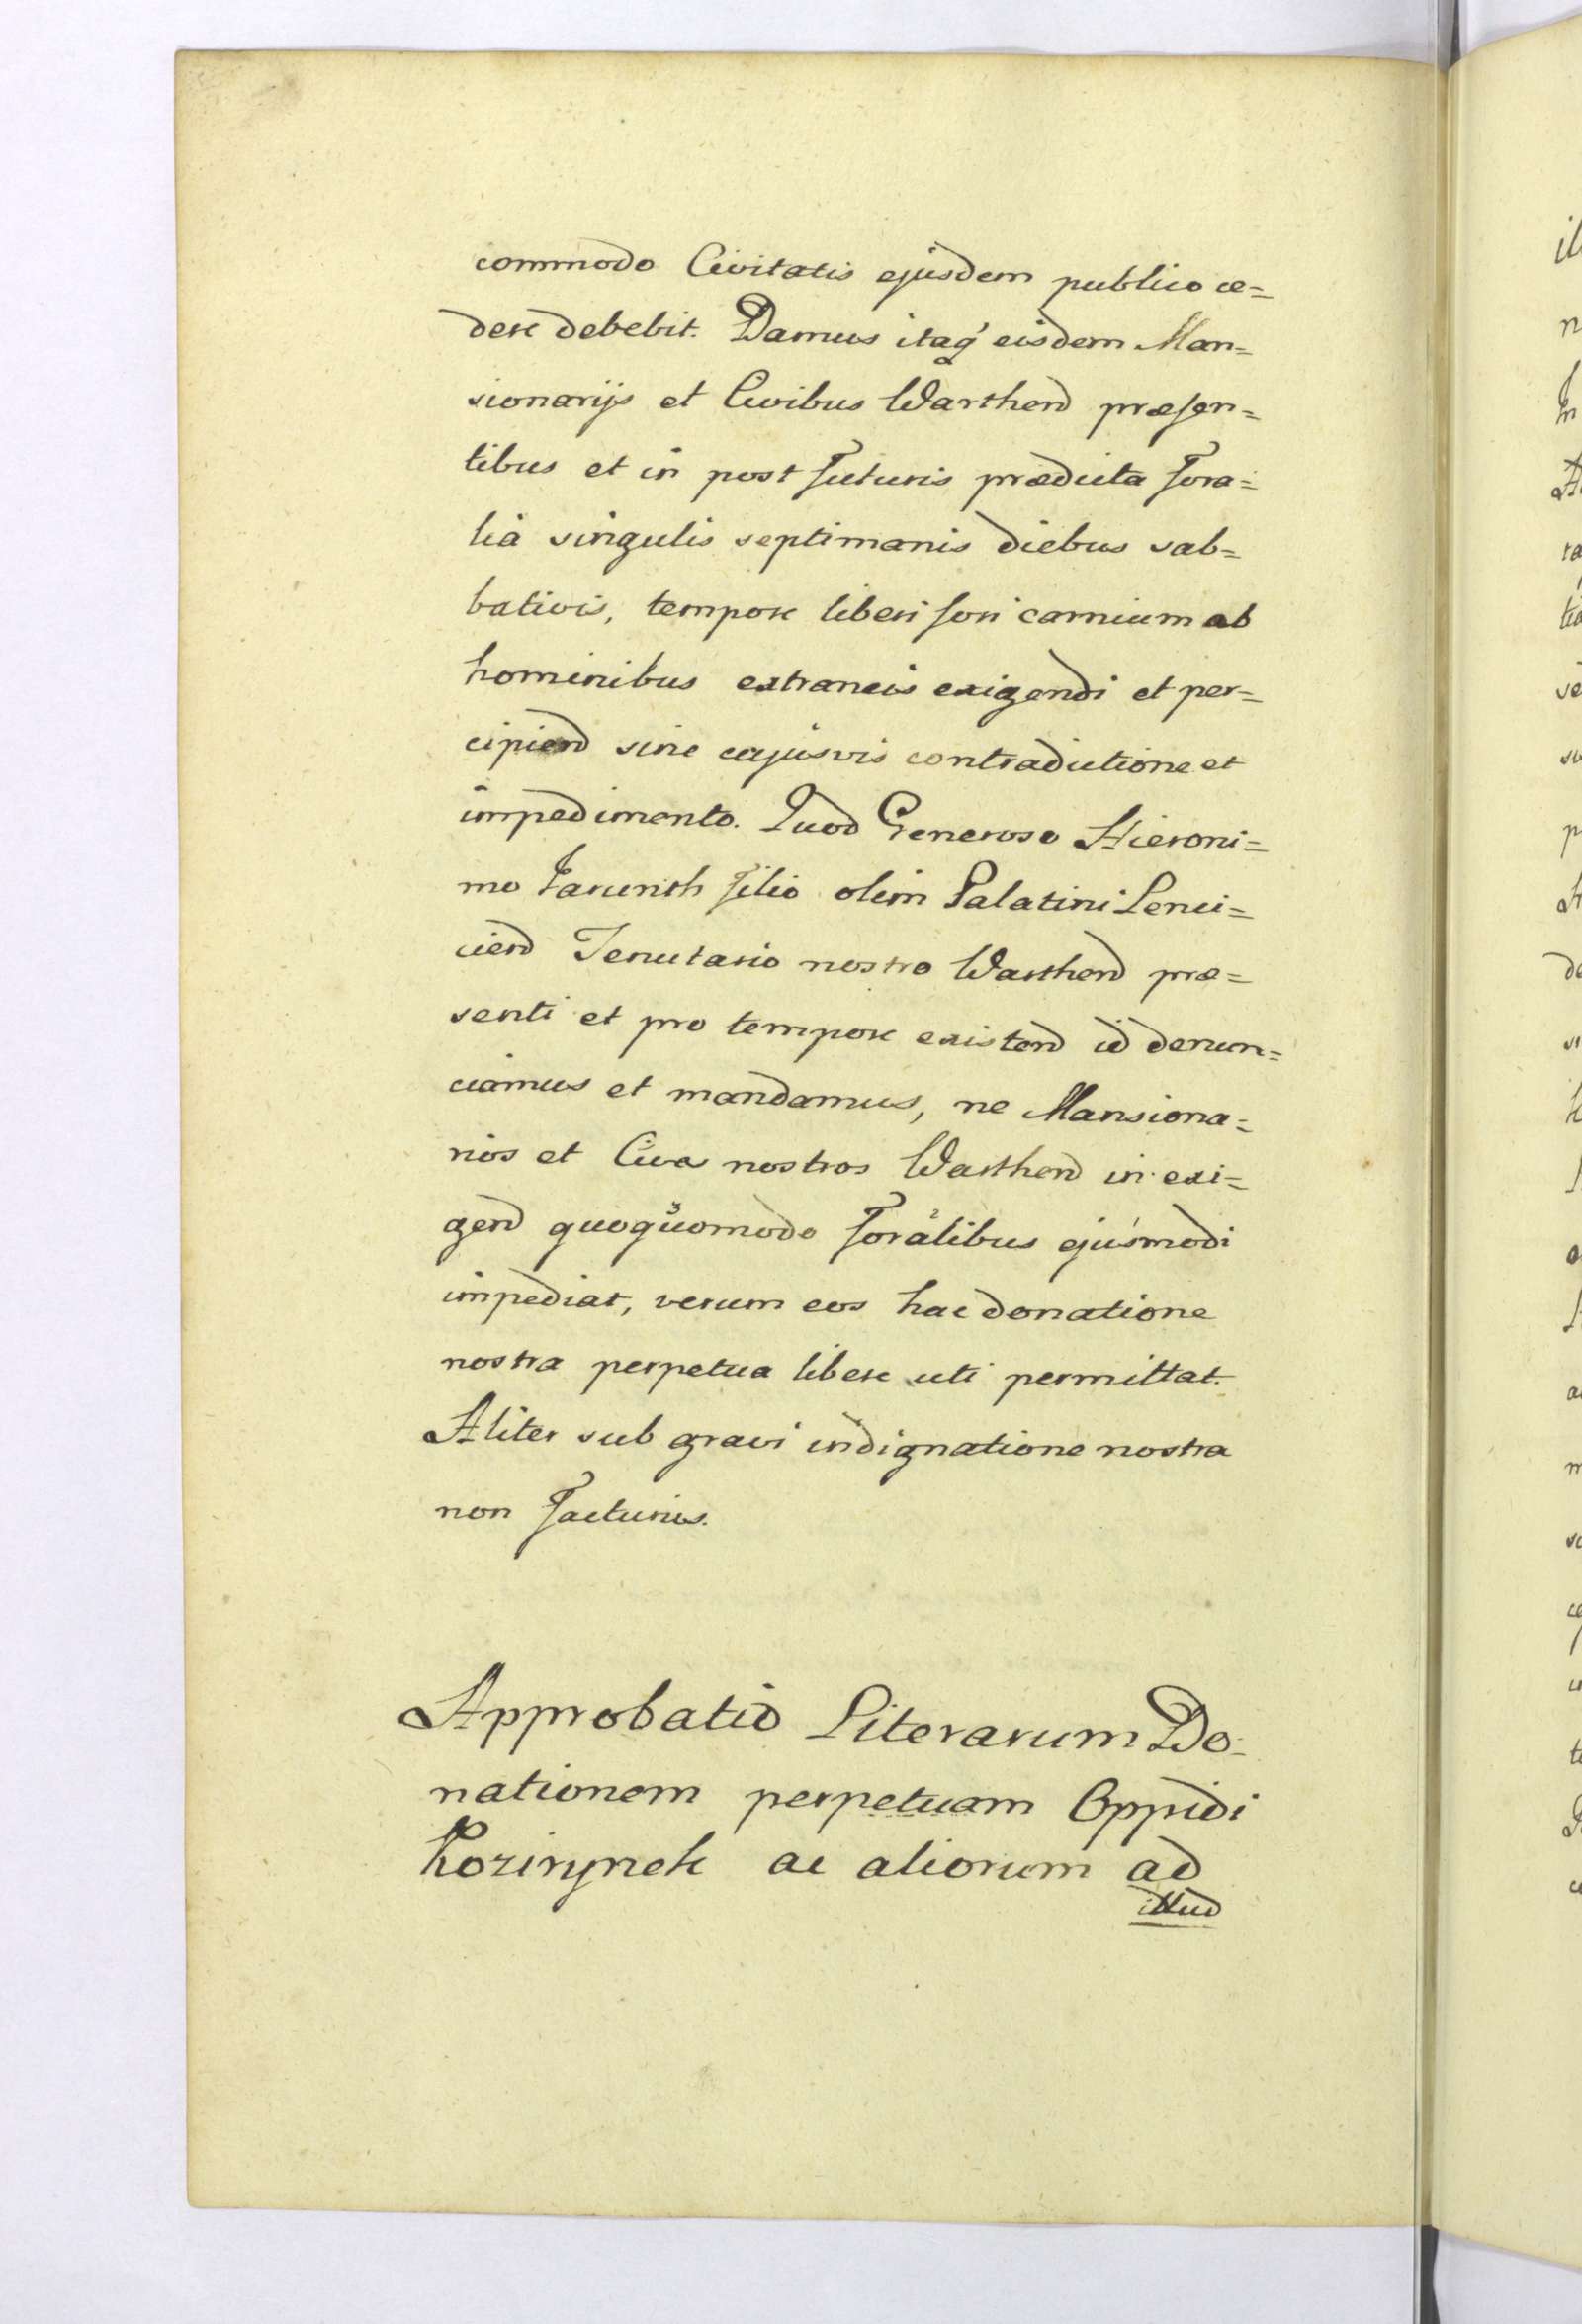 commodo Civitatis ejusdem publico ce=
dere debebit. Damus itaq' eisdem Man=
sionarijs et Civibus Warthend præsen=
tibus et in post futuris prædicta fora=
lia singulis septimanis diebus sab=
bativis, tempore liberi fori carnium ab
hominibus extraneis exigendi et per=
cipiend sine cujusvis contradictione et
impedimento. Quod Generoso Hieroni=
mo filio olim Palatini Lenci=
ciend Tenutario nostro Warthend præ=
senti et pro tempore existend id denun=
ciamus et mandamus, ne Mansiona=
rios et Cives nostros Warthend in exi=
gend quoquomodo foralibus ejusmodi
impediat, verum eos hac donatione
nostra perpetua libere uti permittat.
Aliter sub gravi indignatione nostra
non facturus.
Approbatio Literarum Do=
nationem perpetuam Oppidi
Kozirynek ac aliorum ad
illud